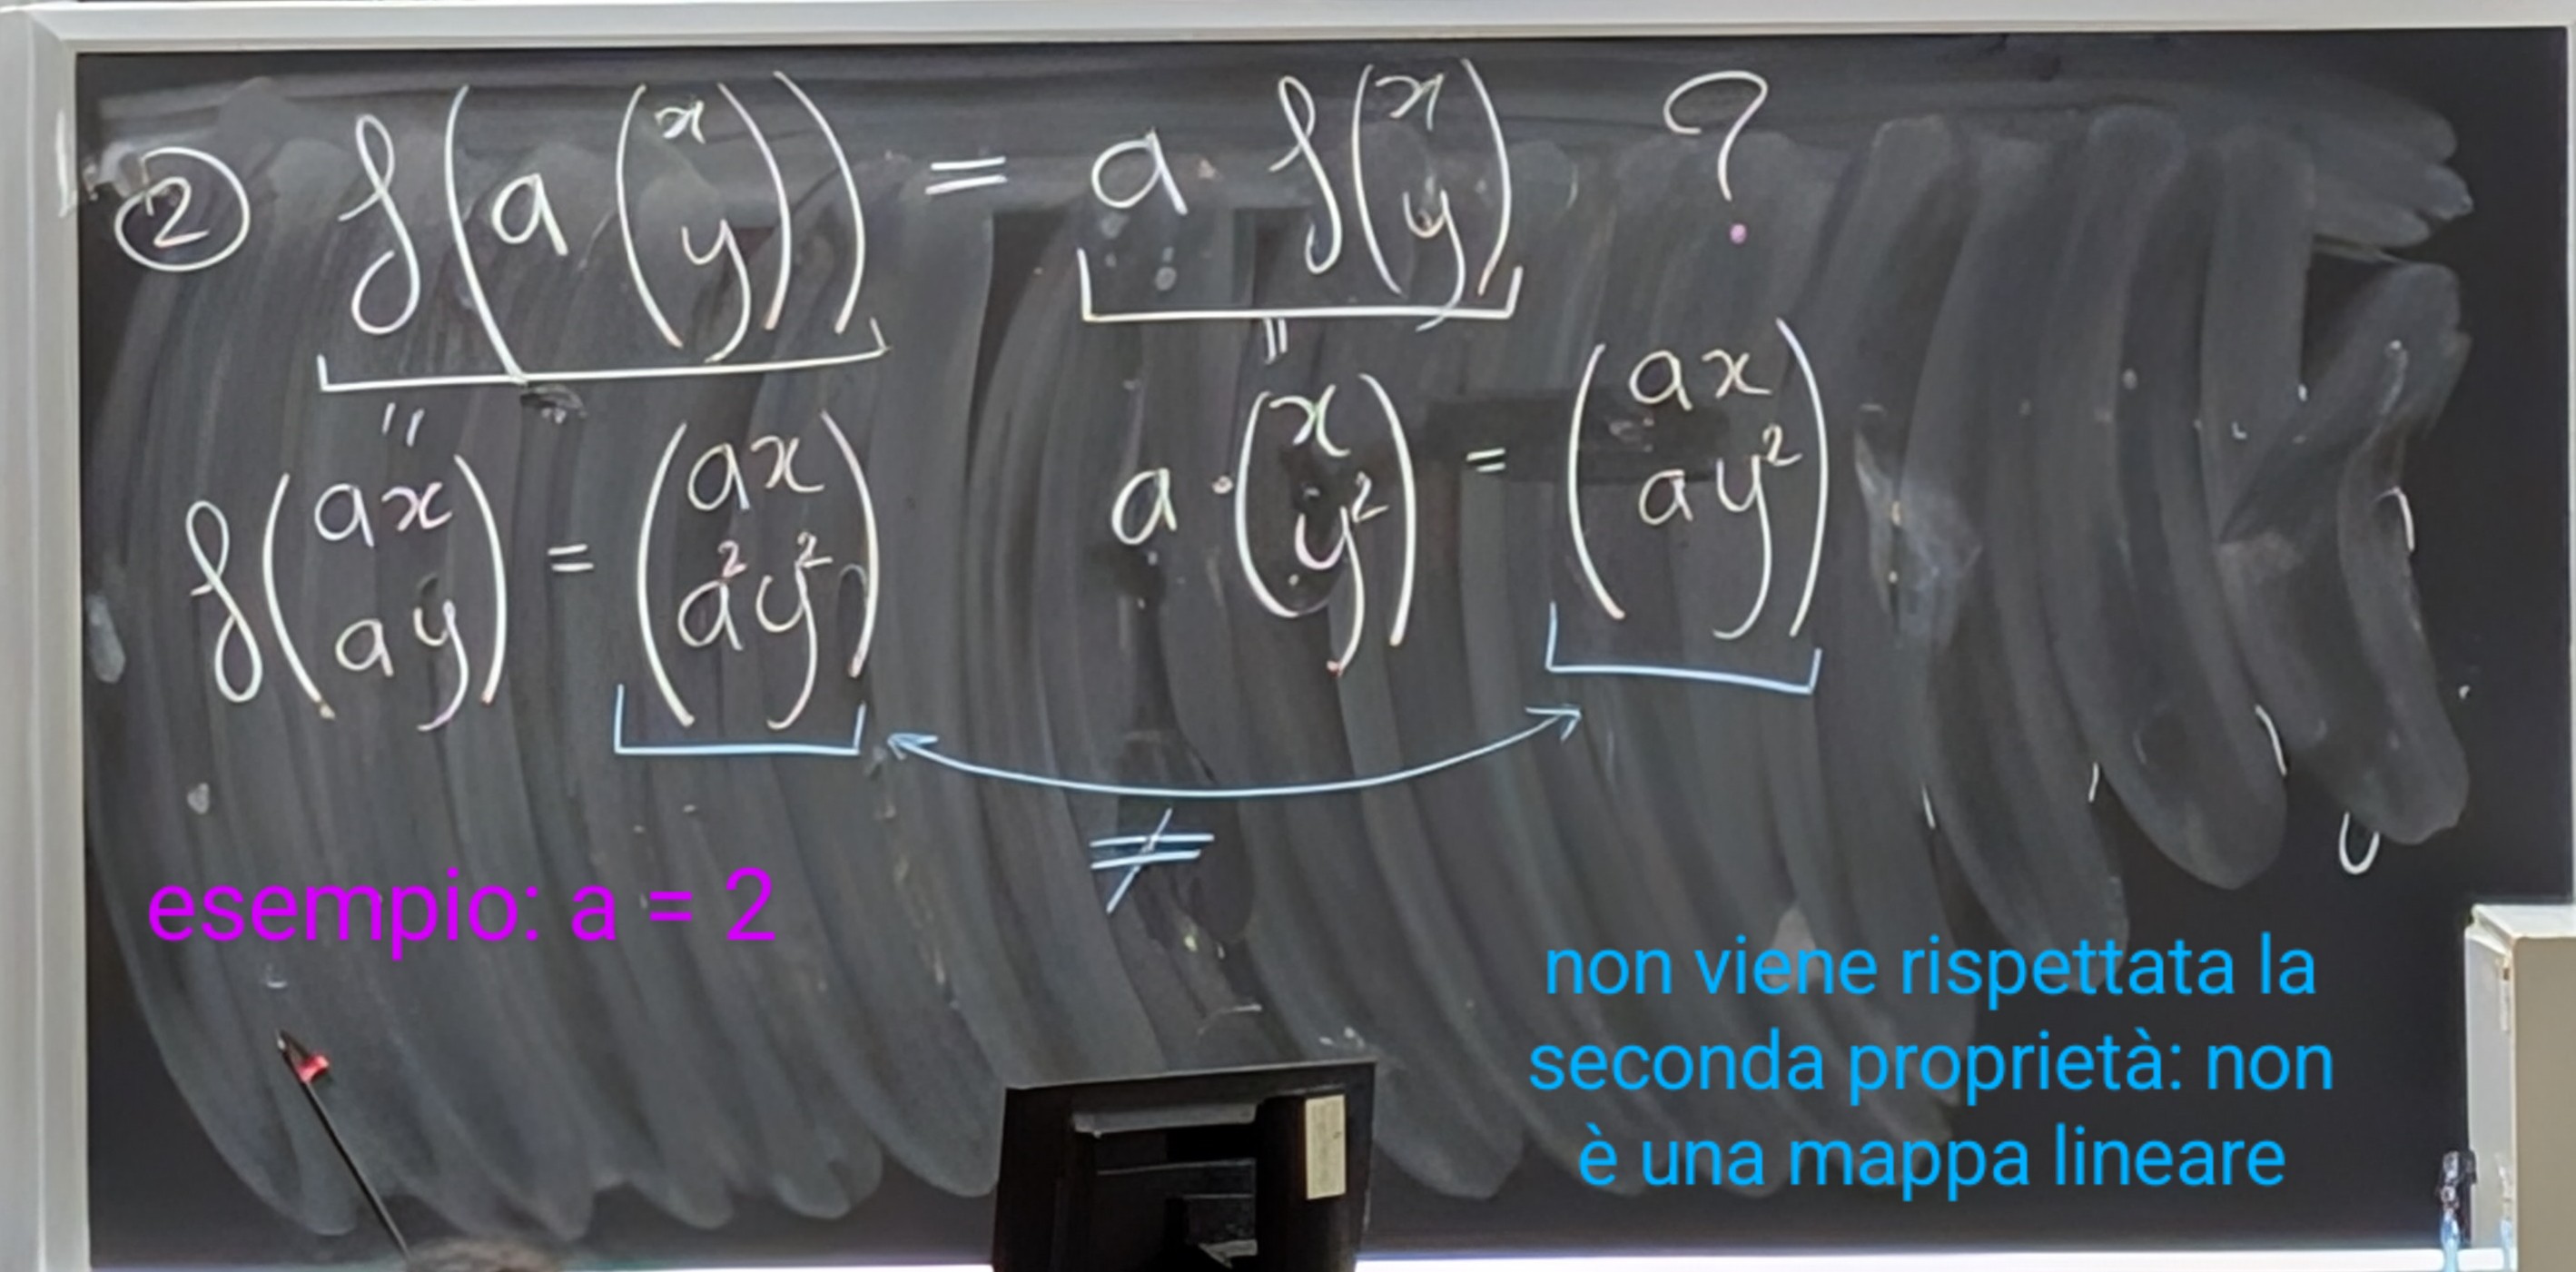 ② f(a(x y)) = a · f(x y) ?
" =
f(ax ay) = (ax a²y²) a · (x y²) = (ax ay²)
≠
esempio: a = 2
non viene rispettata la
seconda proprietà: non
è una mappa lineare